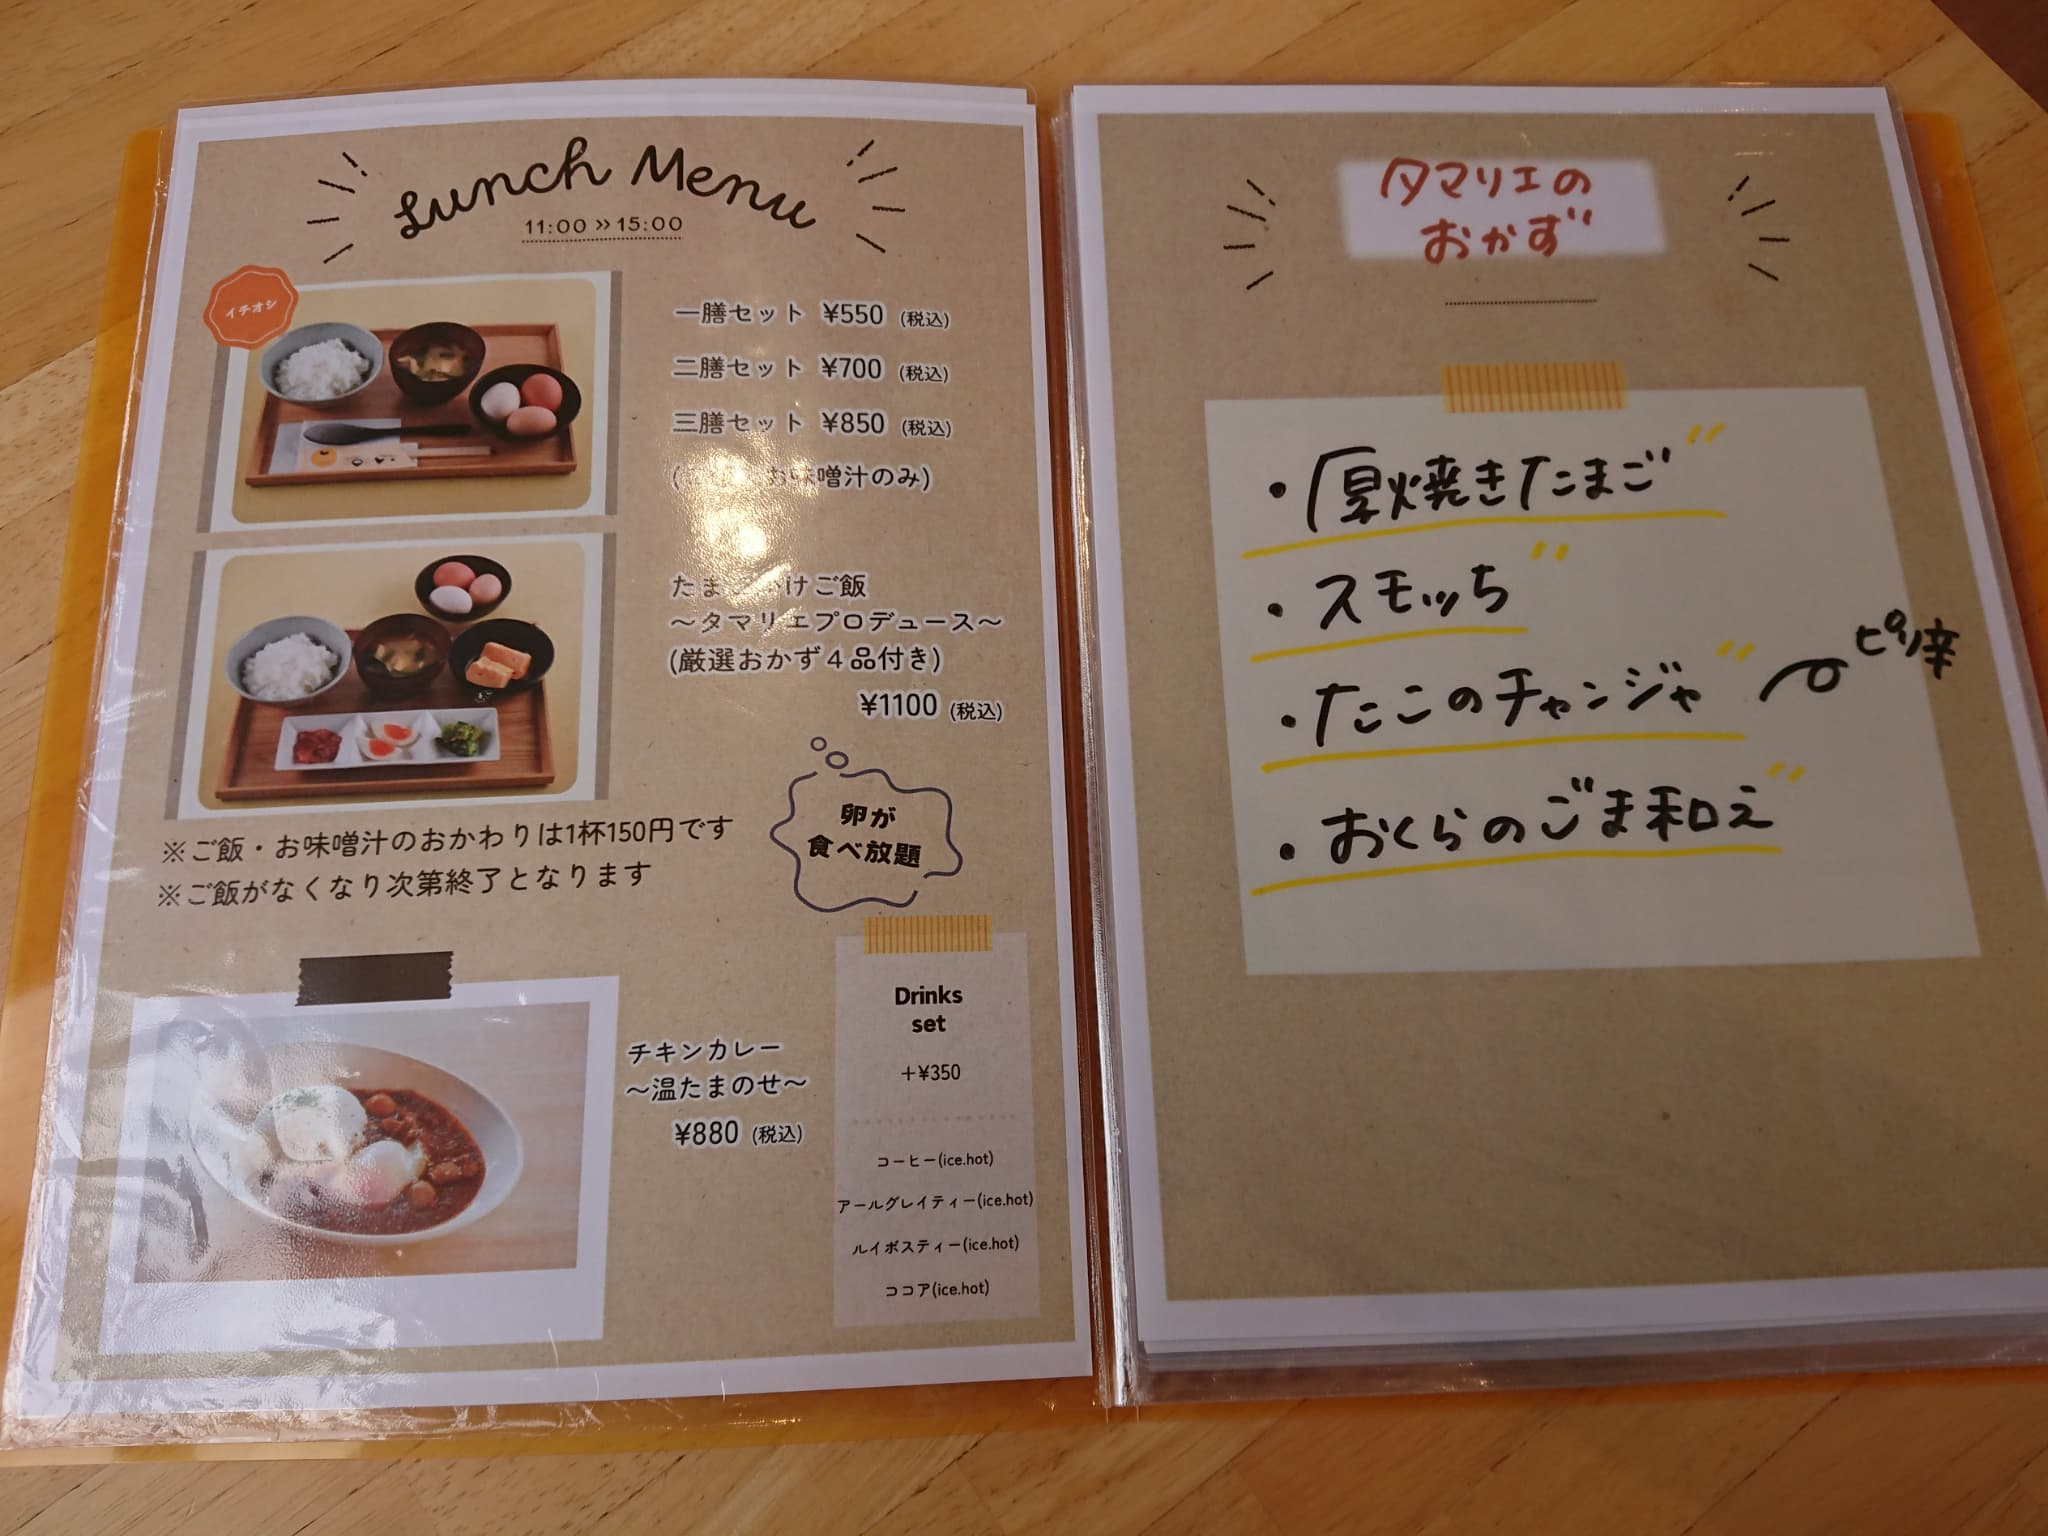 Lunch Menu
11:00 » 15:00
イチオシ
一膳セット ¥550 (税込)
二膳セット ¥700 (税込)
三膳セット ¥850 (税込)
お味噌汁のみ)
たまごかけご飯
～タマリエプロデュース～
(厳選おかず4品付き)
¥1100 (税込)
卵が
食べ放題
※ご飯・お味噌汁のおかわりは1杯150円です
※ご飯がなくなり次第終了となります
チキンカレー
～温たまのせ～
¥880 (税込)
Drinks
set
+¥350
コーヒー(ice.hot)
アールグレイティー(ice.hot)
ルイボスティー(ice.hot)
ココア(ice.hot)
タマリエの
おかず
・厚焼きたまご
・スモッち
・たこのチャンジャ
ピリ辛
・おくらのごま和え